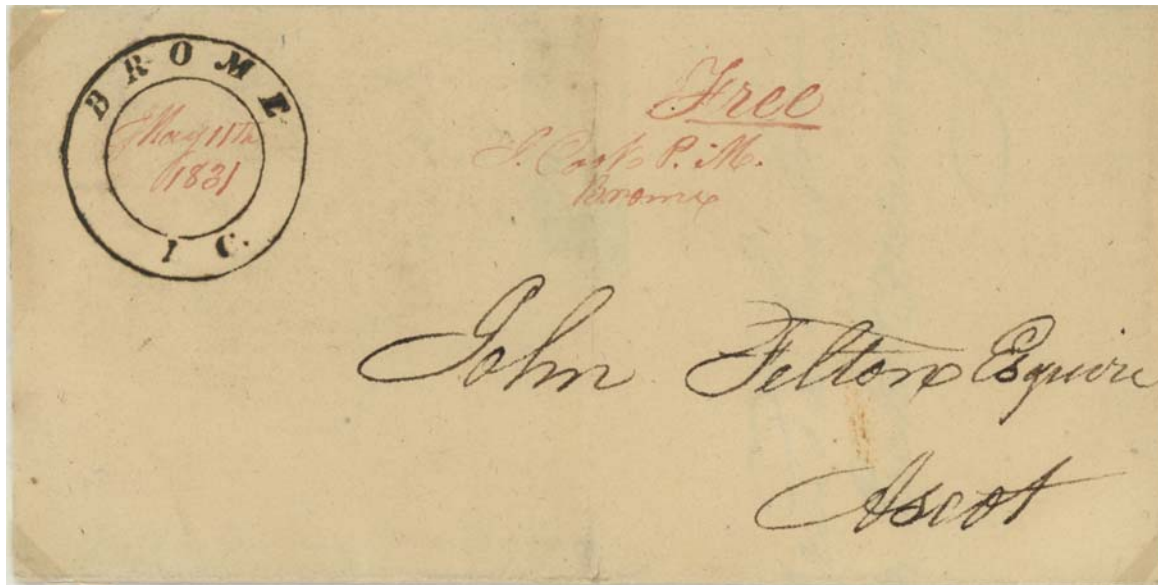 BROME
May 11th
1831
I C.
Free
P. M.
Brome
John Felton Esquire
Ascot